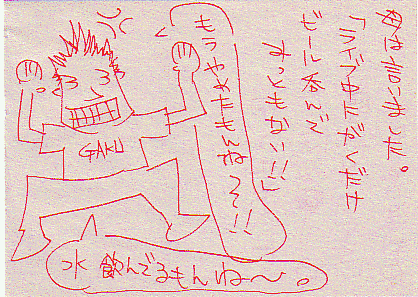 母は言いました。
「ライブ中にがくだけ
ビール呑んで
みっともない!!」
もうやめたもんね〜!!
GAKU
水飲んでるもんね〜。